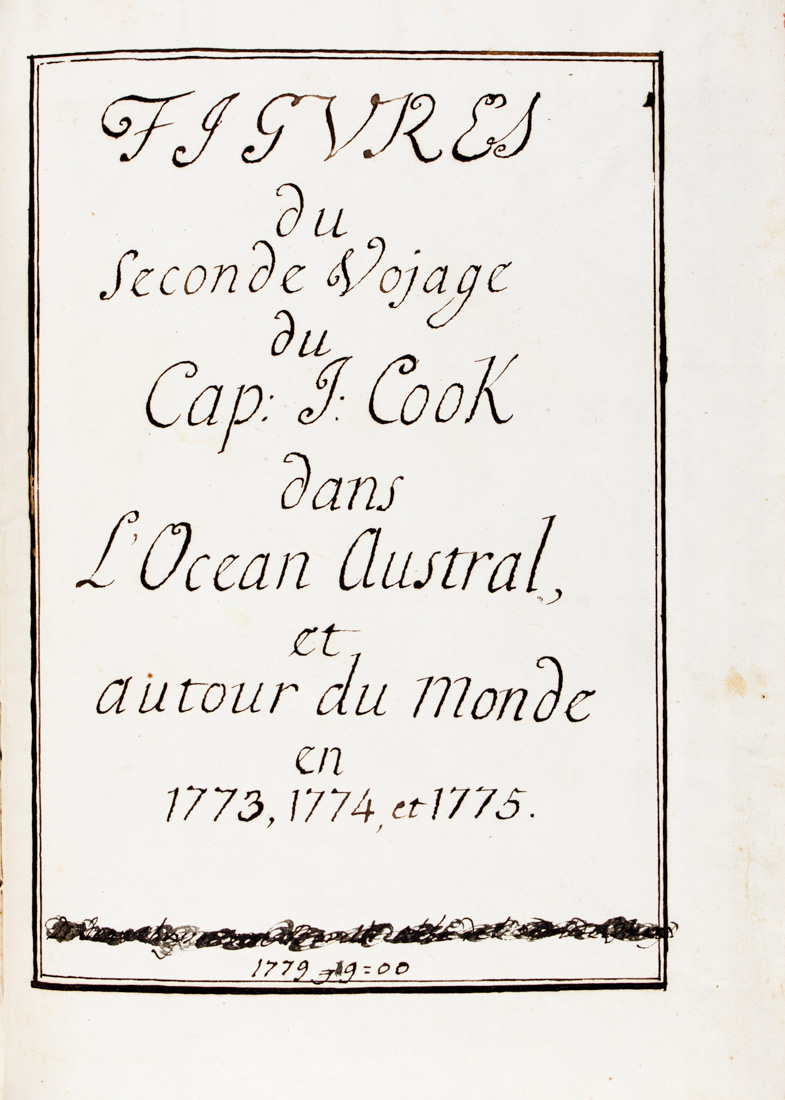 FIGVRES
du
Seconde Vojage
du
Cap: J: Cook
dans
L'Ocean Austral,
et
autour du Monde
en
1773, 1774, et 1775.
1779 9=00